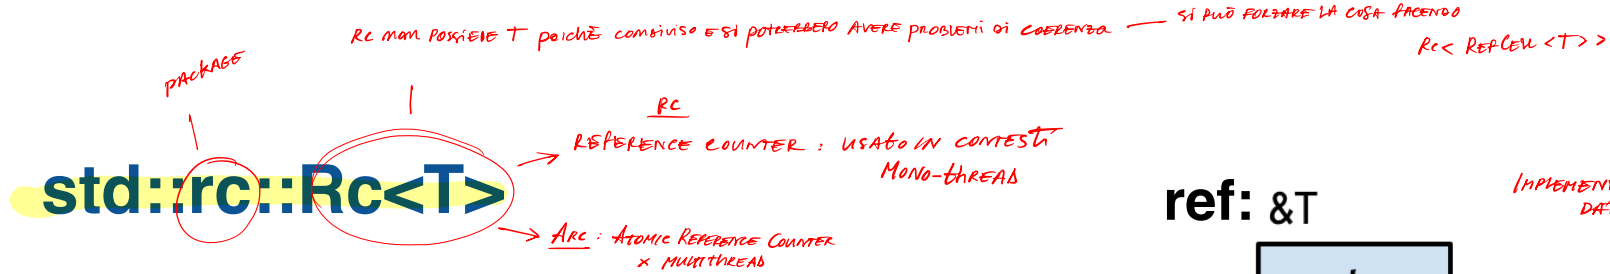 Rc non possiede T poichè condiviso e si potrebbero avere problemi di coerenza — si può forzare la cosa facendo
Rc< RefCell <T> >
package
RC
Reference counter : usato in contesti
mono-thread
std::rc::Rc<T>
Arc : Atomic Reference Counter
x multithread
ref: &T
Implemen
da